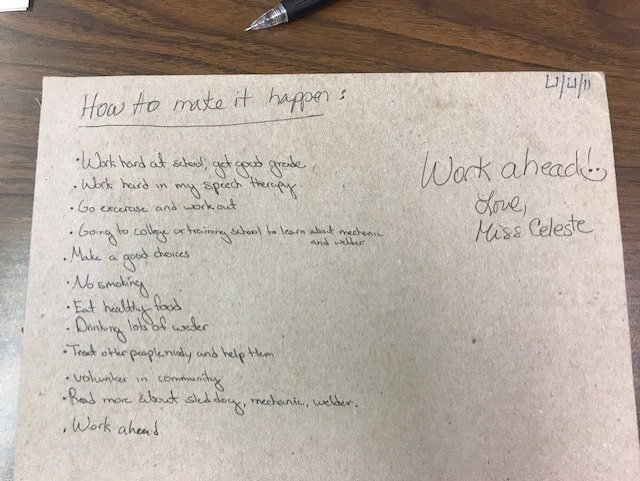 4/4/11
How to make it happen:
• Work hard at school, get good grade
• Work hard in my speech therapy
• Go excerase and work out
• Going to college or training school to learn about mechanic
and welder
• Make a good choices
• No smoking
• Eat healthy food
• Drinking lots of water
• Treat other people nicely and help them
• volunteer in community
• Read more about sled dog, mechanic, welder.
• Work ahead
Work ahead!
Love,
Miss Celeste